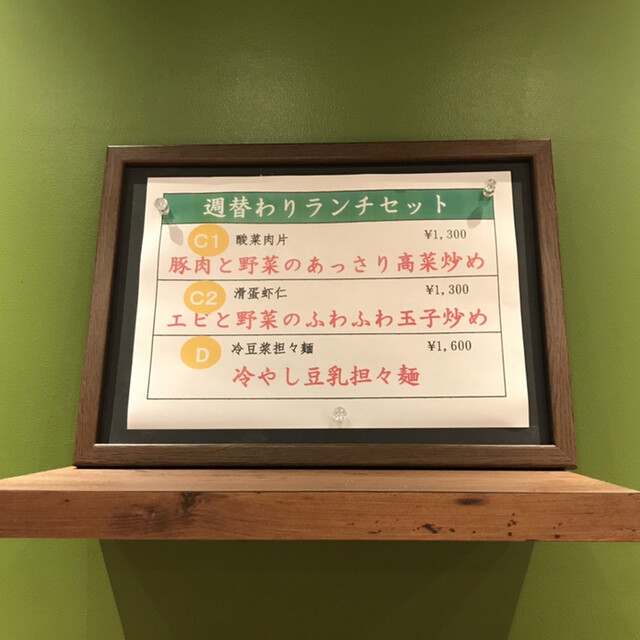 週替わりランチセット
C1 酸菜肉片 ¥1,300
豚肉と野菜のあっさり高菜炒め
C2 滑蛋虾仁 ¥1,300
エビと野菜のふわふわ玉子炒め
D 冷豆浆担々麺 ¥1,600
冷やし豆乳担々麺